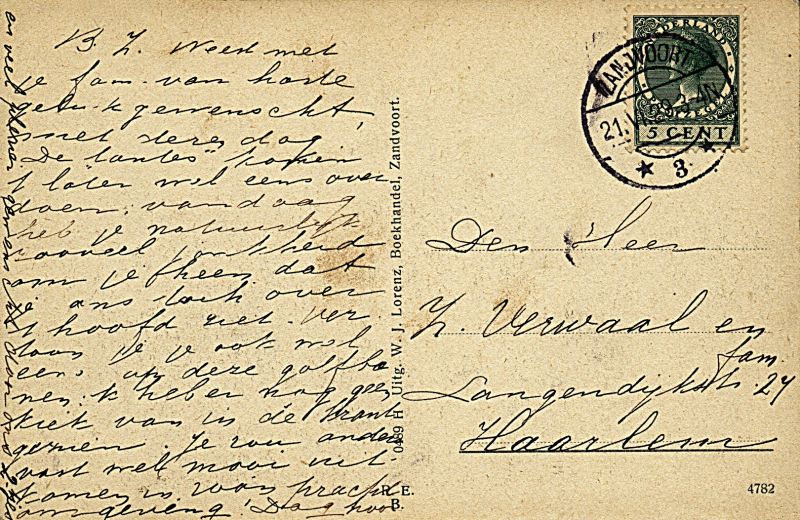 B. Z. Weest met
je fam. van harte
geluk gewenscht
met deze dag,
"De tantes" komen
't later wel eens over
doen; vandaag
heb je natuurlijk
zooveel
om je heen dat
je ons toch over
't hoofd ziet. Ver-
toon je je ook wel
eens op deze golfba
nen; ik heb er nog geen
kiek van in de krant
gezien. Je zou anders
vast wel mooi uit
komen in zoo'n pracht
omgeving! Dag hoor
en veel plezier
0489 H Uitg. W. J. Lorenz, Boekhandel, Zandvoort.
R. E.
B.
NEDERLAND
5 CENT
ZANDVOORT
21.
3
Den Heer
Z. Verwaal en
fam.
Langendijkstr. 27
Haarlem
4782